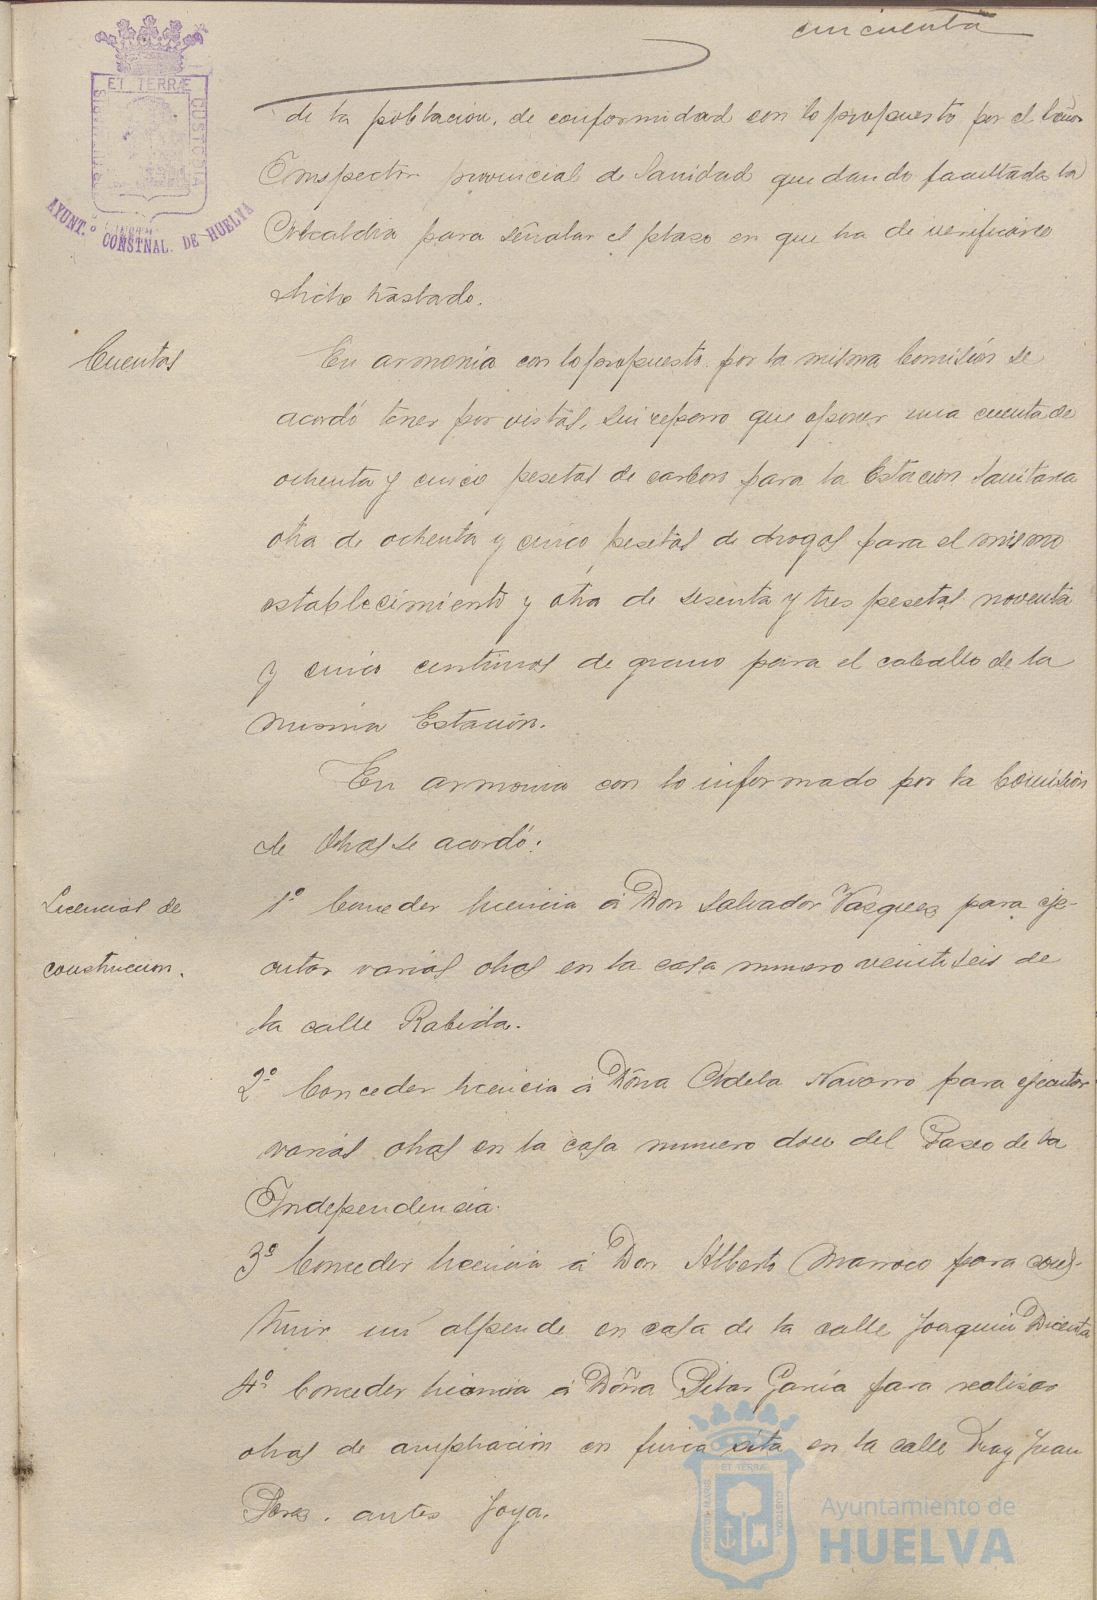 cincuenta
ET TERRÆ
CUSTODIA
AYUNT.º CONSTNAL. DE HUELVA
de la poblacion, de conformidad con lo propuesto por el Señor
Inspector provincial de Sanidad quedando facultada la
Alcaldia para señalar el plazo en que ha de verificarse
dicho traslado.
Cuentas
En armonia con lo propuesto por la misma Comisión se
acordó tener por vistas, sin reparo que oponer una cuenta de
ochenta y cinco pesetas de carbon para la Estacion Sanitaria
otra de ochenta y cinco pesetas de drogas para el mismo
establecimiento y otra de sesenta y tres pesetas noventa
y cinco centimos de grano para el caballo de la
misma Estación.
En armonia con lo informado por la Comisión
de Obras se acordó:
Licencias de
construccion.
1º Conceder licencia á Don Salvador Vazquez para eje-
cutar varias obras en la casa numero veintiseis de
la calle Rabida.
2º Conceder licencia á Doña Adela Navarro para ejecutar
varias obras en la casa numero doce del Paseo de la
Independencia.
3º Conceder licencia á Don Alberto Marroco para cons-
truir un alpende en casa de la calle Joaquin Dicenta
4º Conceder licencia á Doña Pilar García para realizar
obras de ampliación en finca sita en la calle Fray Juan
Perez. antes Joya.
ET TERRÆ
CUSTODIA
Ayuntamiento de
HUELVA